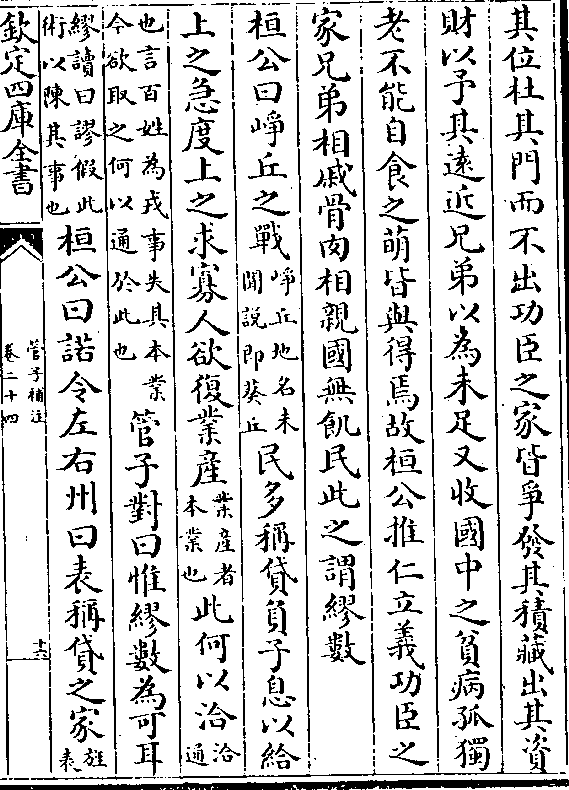 其位杜其門而不出功臣之家皆爭發其積藏出其資
財以予其遠近兄弟以為未足又收國中之貧病孤獨
老不能自食之萌皆與得焉故桓公推仁立義功臣之
家兄弟相戚骨肉相親國無飢民此之謂繆數
桓公曰崢丘之戰崢丘地名未聞說即葵丘民多稱貸負子息以給
上之急度上之求寡人欲復業產業產者本業也此何以洽洽通
也言百姓為戎事失其本業今欲取之何以通於此也管子對曰惟繆數為可耳
繆讀曰謬假此術以陳其事也桓公曰諾令左右州曰表稱貸之家旌表
欽定四庫全書
管子補注
卷二十四
十六